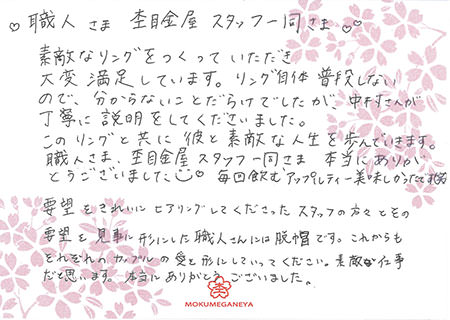 ♡職人さま 杢目金屋 スタッフ一同さま♡♡
素敵なリングをつくっていただき
大変満足しています。リング自体普段しない
ので、分からないことだらけでしたが、中村さんが
丁寧に説明をしてくださいました。
このリングと共に彼と素敵な人生を歩んでいきます。
職人さま、杢目金屋スタッフ一同さま 本当にありが
とうございました 毎回飲むアップルティー美味しかったです
要望をきれいにヒアリングしてくださったスタッフの方々とその
要望を見事に形にした職人さんには脱帽です。これからも
それぞれのカップルの愛を形にしていってください。素敵な仕事
だと思います。本当にありがとうございました。
MOKUMEGANEYA